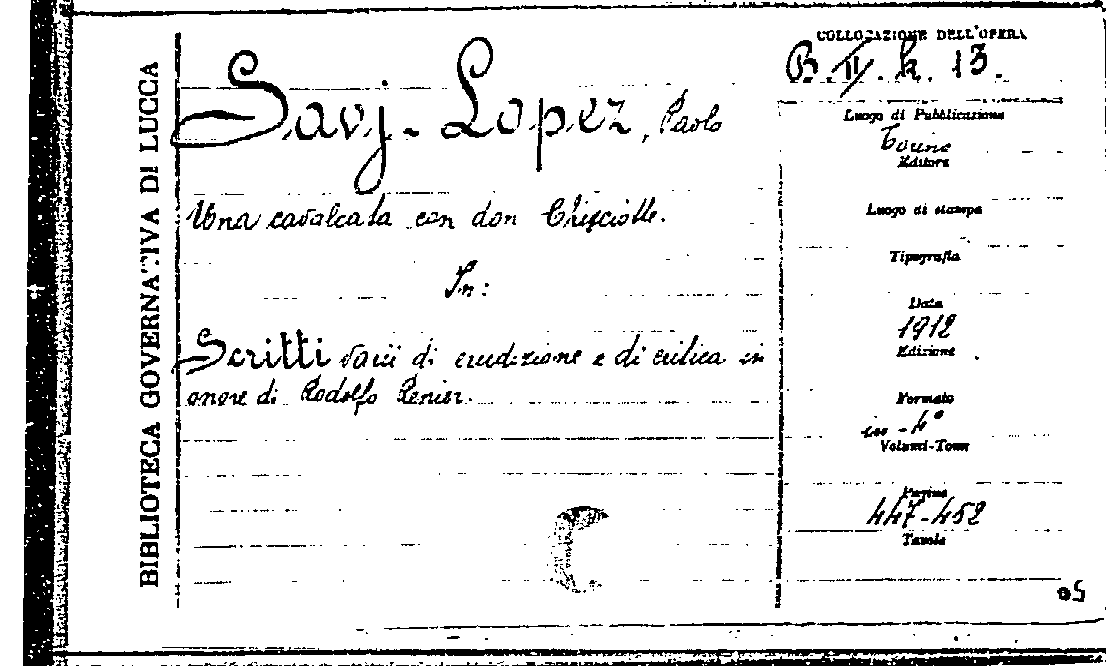 BIBLIOTECA GOVERNATIVA DI LUCCA
Savj-Lopez, Paolo
Una cavalcata con don Chisciotte.
In:
Scritti varii di erudizione e di critica in
onore di Rodolfo Renier.
COLLOCAZIONE DELL'OPERA
B. II. k. 13.
Luogo di Pubblicazione
Torino
Editore
Luogo di stampa
Tipografia
Data
1912
Edizione
Formato
in-4°
Volumi-Tomi
Pagine
447-452
Tavole